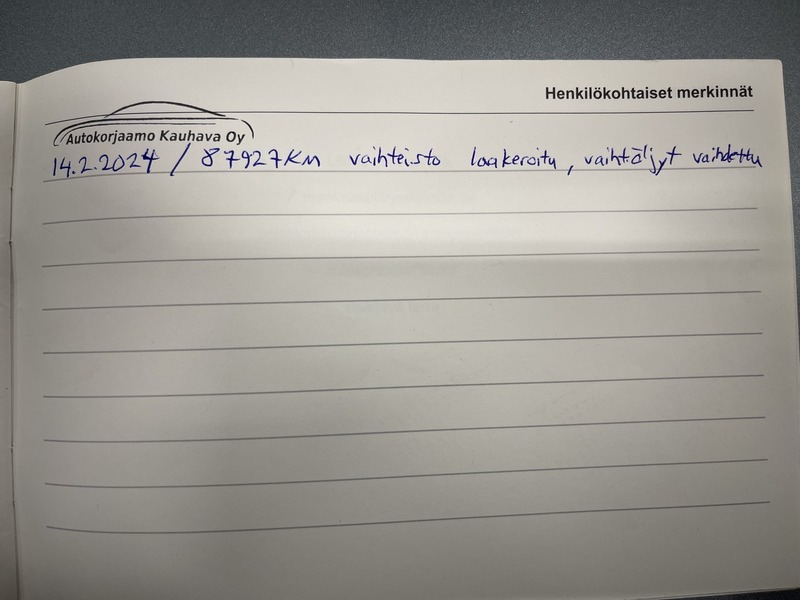 Henkilökohtaiset merkinnät
Autokorjaamo Kauhava Oy
14.2.2024 / 87927KM vaihteisto laakeroitu, vaihtöljyt vaihdettu